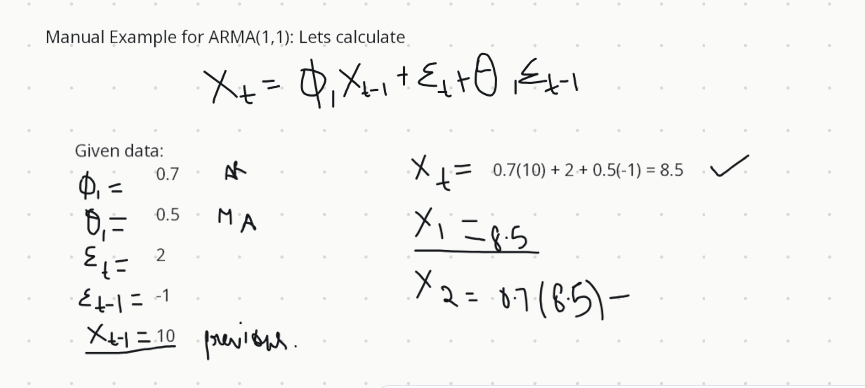 Manual Example for ARMA(1,1): Lets calculate
X_t = ϕ_1 X_{t-1} + ε_t + θ_1 ε_{t-1}
Given data:
ϕ_1 = 0.7 AR
θ_1 = 0.5 MA
ε_t = 2
ε_{t-1} = -1
X_{t-1} = 10 previous.
X_t = 0.7(10) + 2 + 0.5(-1) = 8.5 ✓
X_1 = 8.5
X_2 = 0.7(8.5) –